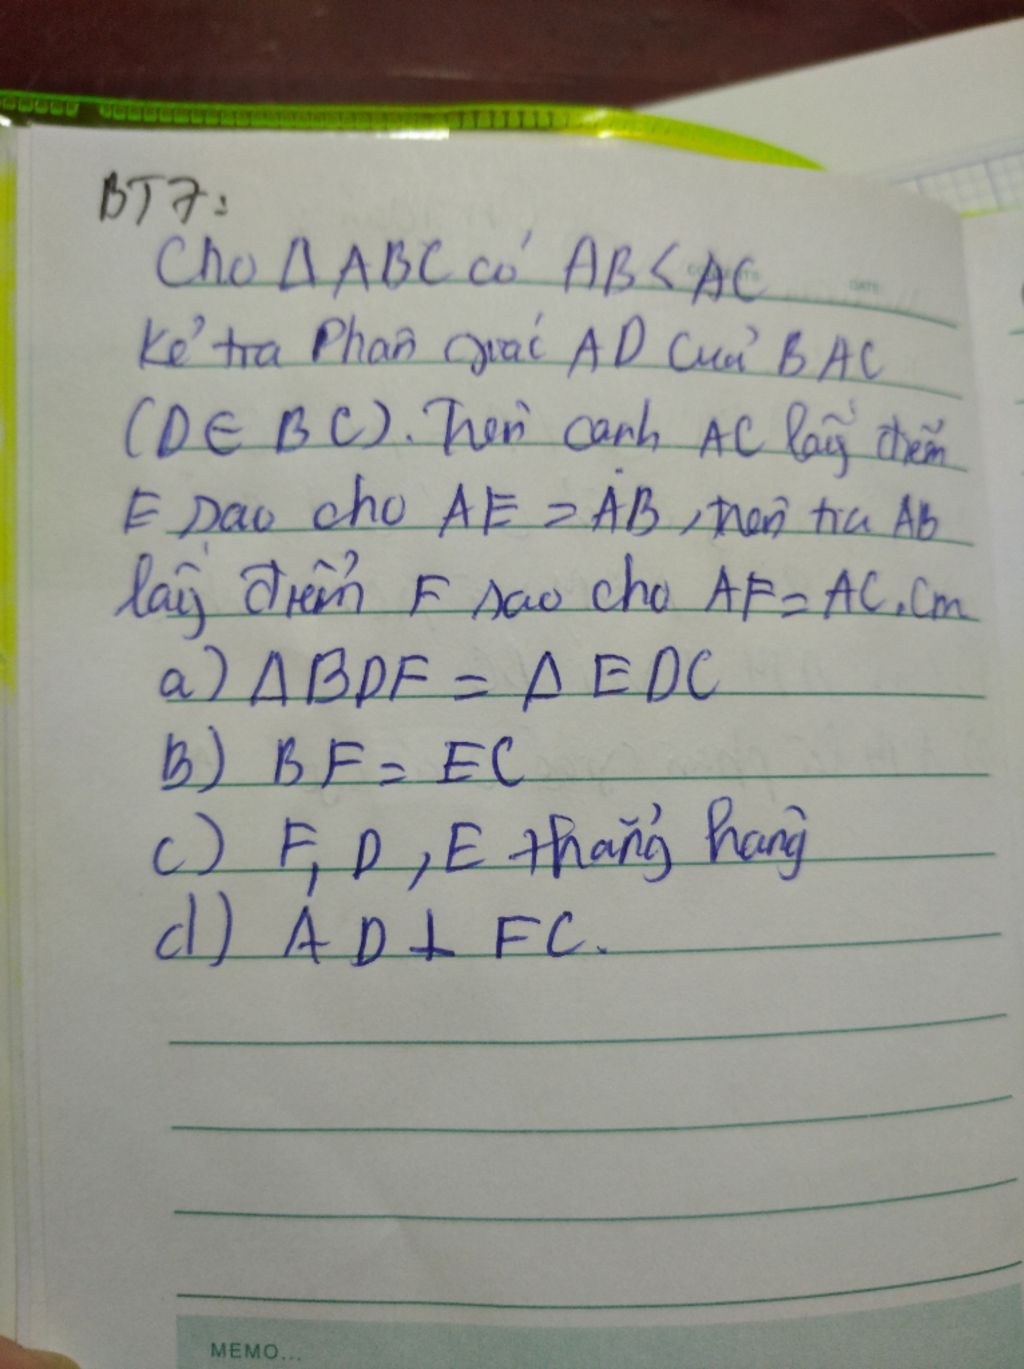 BT7:
Cho Δ ABC có AB < AC
Kẻ tia Phân giác AD Của BAC
(D ∈ BC). Trên cạnh AC lấy điểm
E sao cho AE = AB, trên tia AB
lấy điểm F sao cho AF = AC. Cm
a) Δ BDF = Δ EDC
B) BF = EC
c) F, D, E thẳng hàng
d) AD ⊥ FC.
MEMO...